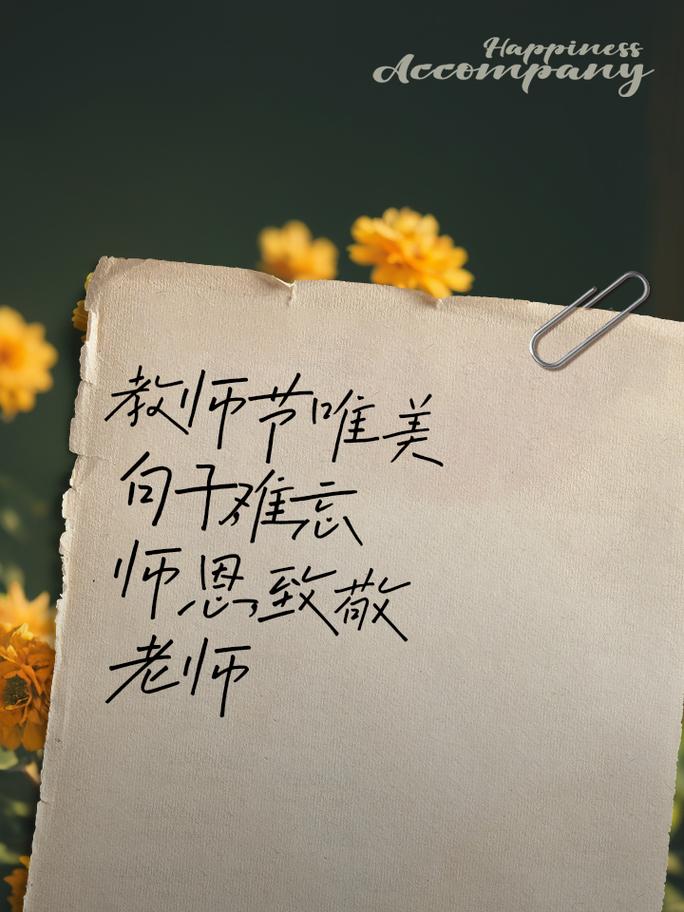 Happiness
Accompany
教师节唯美
句子难忘
师恩致敬
老师